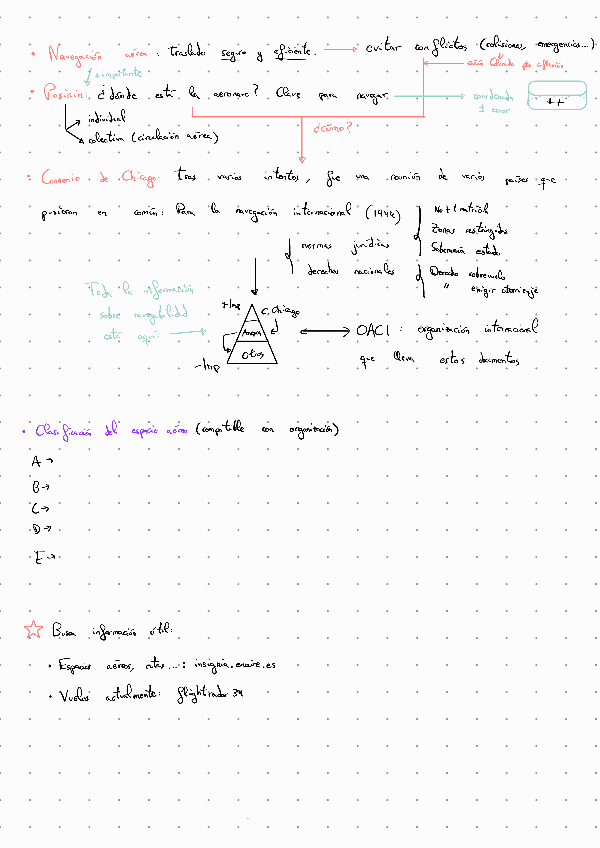 • Navegación aérea: traslado seguro y eficiente. → evitar conflictos (colisiones, emergencias...)
importante
• Posición: ¿dónde está la aeronave? Clave para navegar → coordenada
± error
++
→ individual
→ colectiva (circulación aérea)
¿cómo?
• Convenio de Chicago: tras varios intentos, fue una reunión de varios países que
pusieron en común: Para la navegación internacional (1944)
normas jurídicas
derechos nacionales
Zonas restringidas
Soberanía estado
Derecho sobrevuelo
" exigir aterrizaje
Toda la información
sobre navegabilidad
está aquí:
+Imp
C. Chicago
Anexos
Otros
-Imp
OACI: organización internacional
que lleva estos documentos
• Clasificación del espacio aéreo (compatible con organización)
A →
B →
C →
D →
E →
☆ Busca información útil:
• Espacios aéreos, rutas ...: insignia.enaire.es
• Vuelos actualmente: flightradar 24